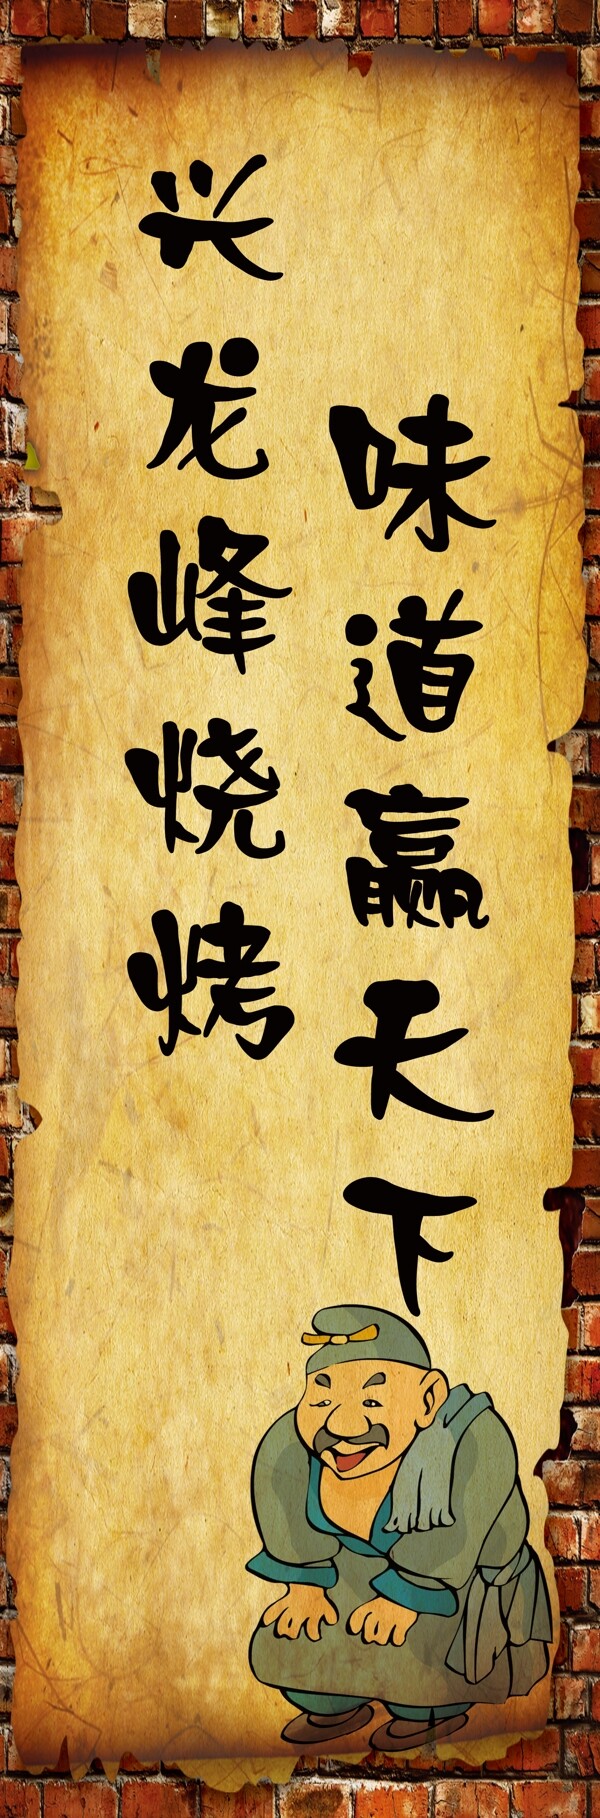 兴龙峰烧烤
味道赢天下